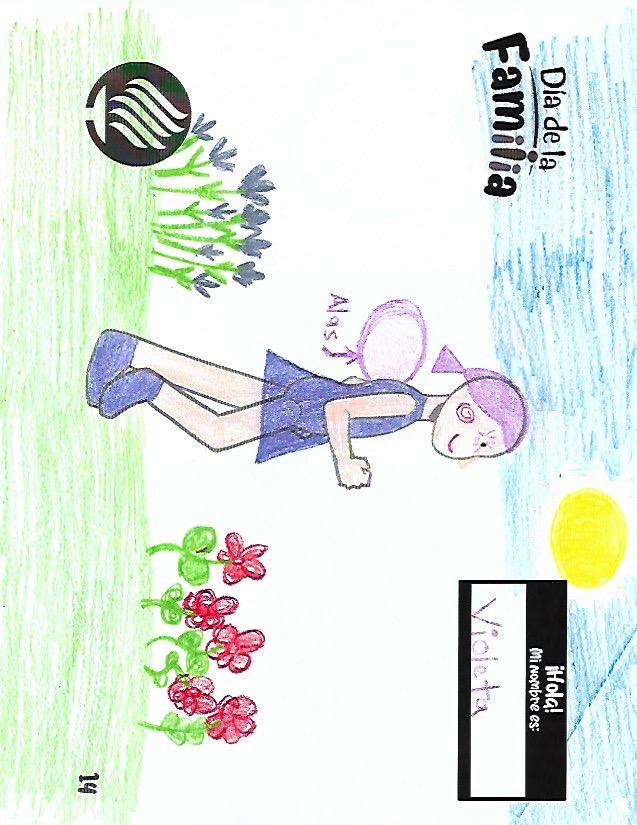 Día de la
Familia
¡Hola!
Mi nombre es:
Violeta
Alas
14